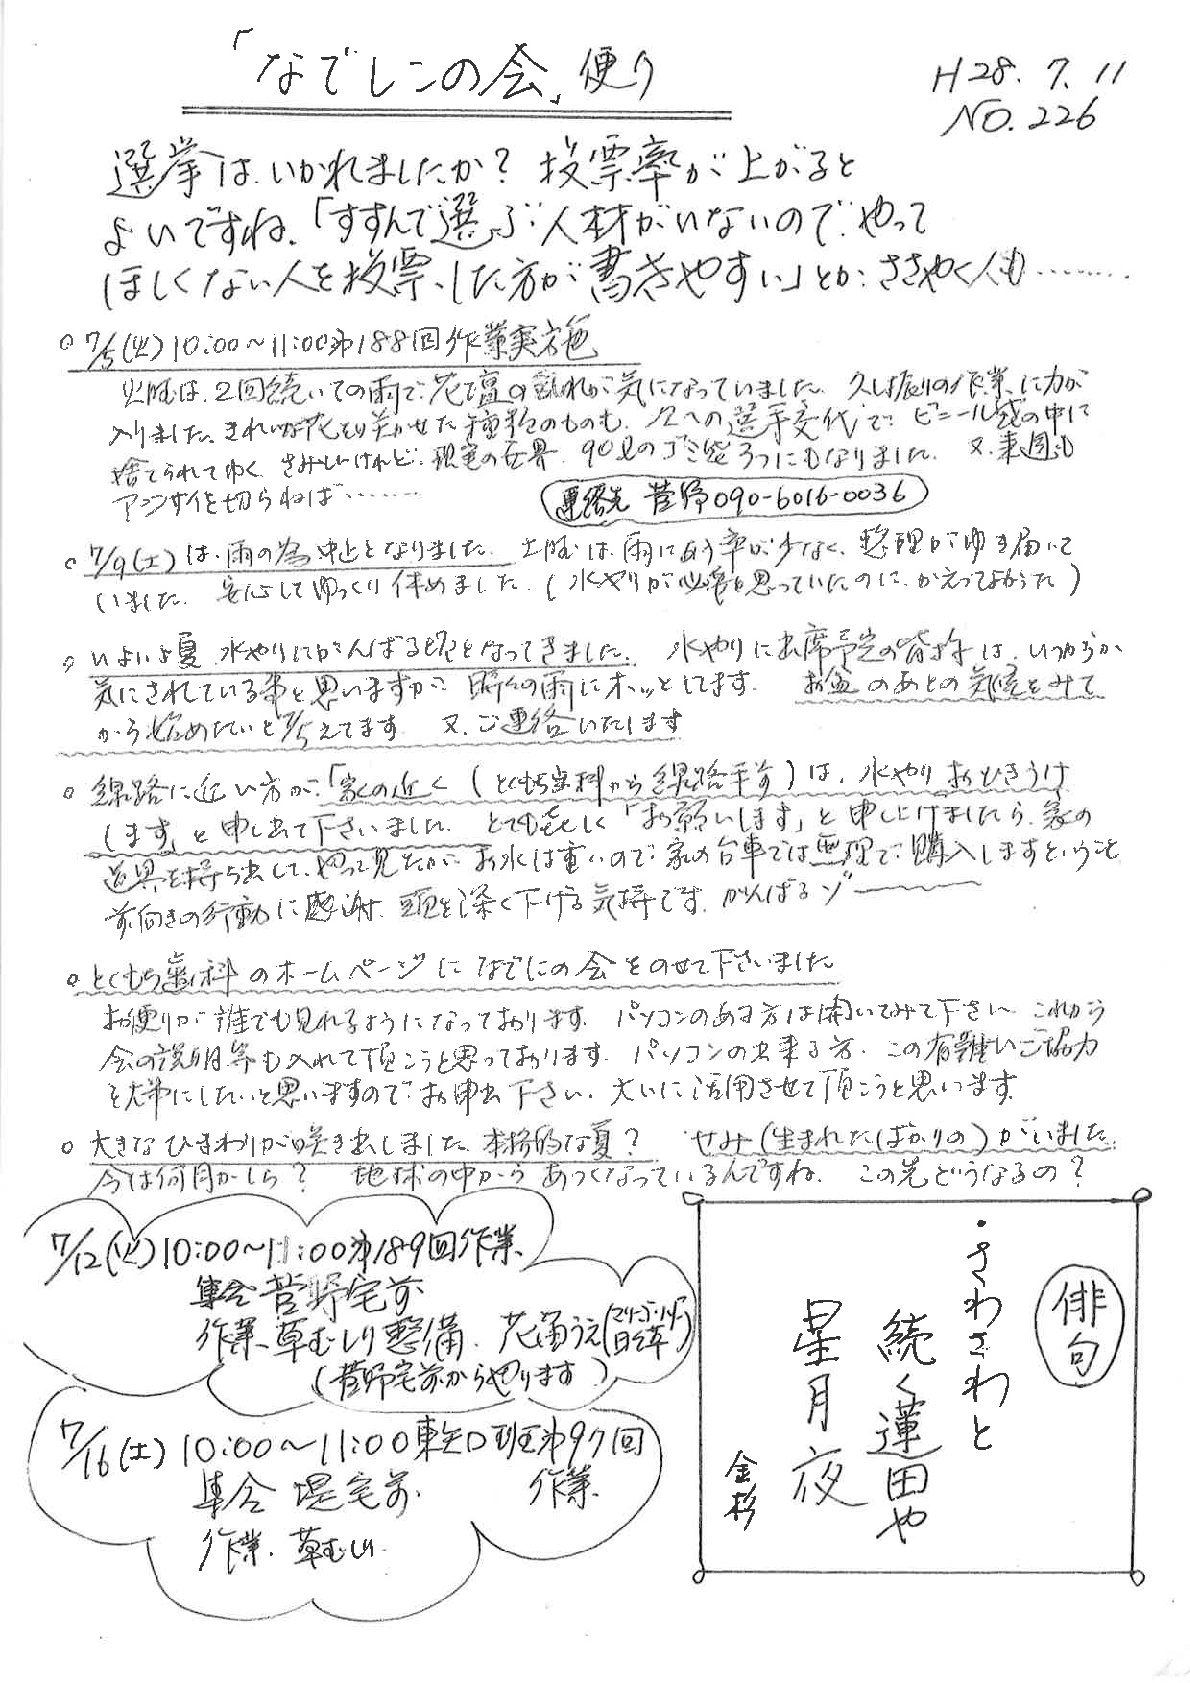 「なでしこの会」便り
H28.7.11
NO.226
選挙はいかれましたか? 投票率が上がると
よいですね。「すすんで選ぶ人材がいないので、やって
ほしくない人を投票した方が書きやすい」とか、ささやく人も………
○7/5(火)10:00〜11:00第188回作業実施
火曜は、2回続いての雨で、花壇の乱れが気になっていました。久し振りの作業に力が
入りました。きれいな花を咲かせた種類のものも、次への選手交代で、ビニール袋の中に
捨てられてゆく。さみしいけれど、現実の世界。90ℓのゴミ袋3つにもなりました。又、来週も
アジサイを切らねば………
連絡先 菅野090-6016-0036
○7/9(土)は、雨の為中止となりました。土曜は、雨にあう率が少なく、整理がゆき届いて
いました。安心してゆっくり休めました。(水やりが必要と思っていたのに、かえってよかった)
○いよいよ夏 水やりにがんばる時となってきました。水やりに出席予定の皆様は、いつからか
気にされている事と思いますが、時々の雨にホッとしてます。お盆のあとの気候をみて
から始めたいと考えてます。又、ご連絡いたします
○線路に近い方が、「家の近く(とくもち歯科から線路手前)は、水やりおひきうけ
します」と申し出て下さいました。とても嬉しく「お願いします」と申し上げましたら、家の
道具を持ち出して、やって見たが、お水は重いので、家の台車では無理で、購入しますということ
前向きの行動に感謝、頭を深く下げる気持です。がんばるゾ〜
○とくもち歯科のホームページになでしこの会をのせて下さいました
お便りが誰でも見れるようになっております。パソコンのある方は開いてみて下さい。これから
会の説明等も入れて頂こうと思っております。パソコンの出来る方、この有難いご協力
を大事にしたいと思いますので、お申出下さい。大いに活用させて頂こうと思います。
○大きなひまわりが咲き出しました。本格的な夏? せみ(生まれたばかりの)がいました。
今は何月かしら? 地球の中からあつくなっているんですね。この先どうなるの?
7/12(火)10:00〜11:00第189回作業
集合 菅野宅前
作業、草むしり整備、花苗うえ(マリーゴールド日々草)
(菅野宅前からやります)
7/16(土)10:00〜11:00東矢口班第97回
作業
集合 堤宅前
作業、草むしり
俳句
・さわさわと
続く蓮田や
星月夜
金杉